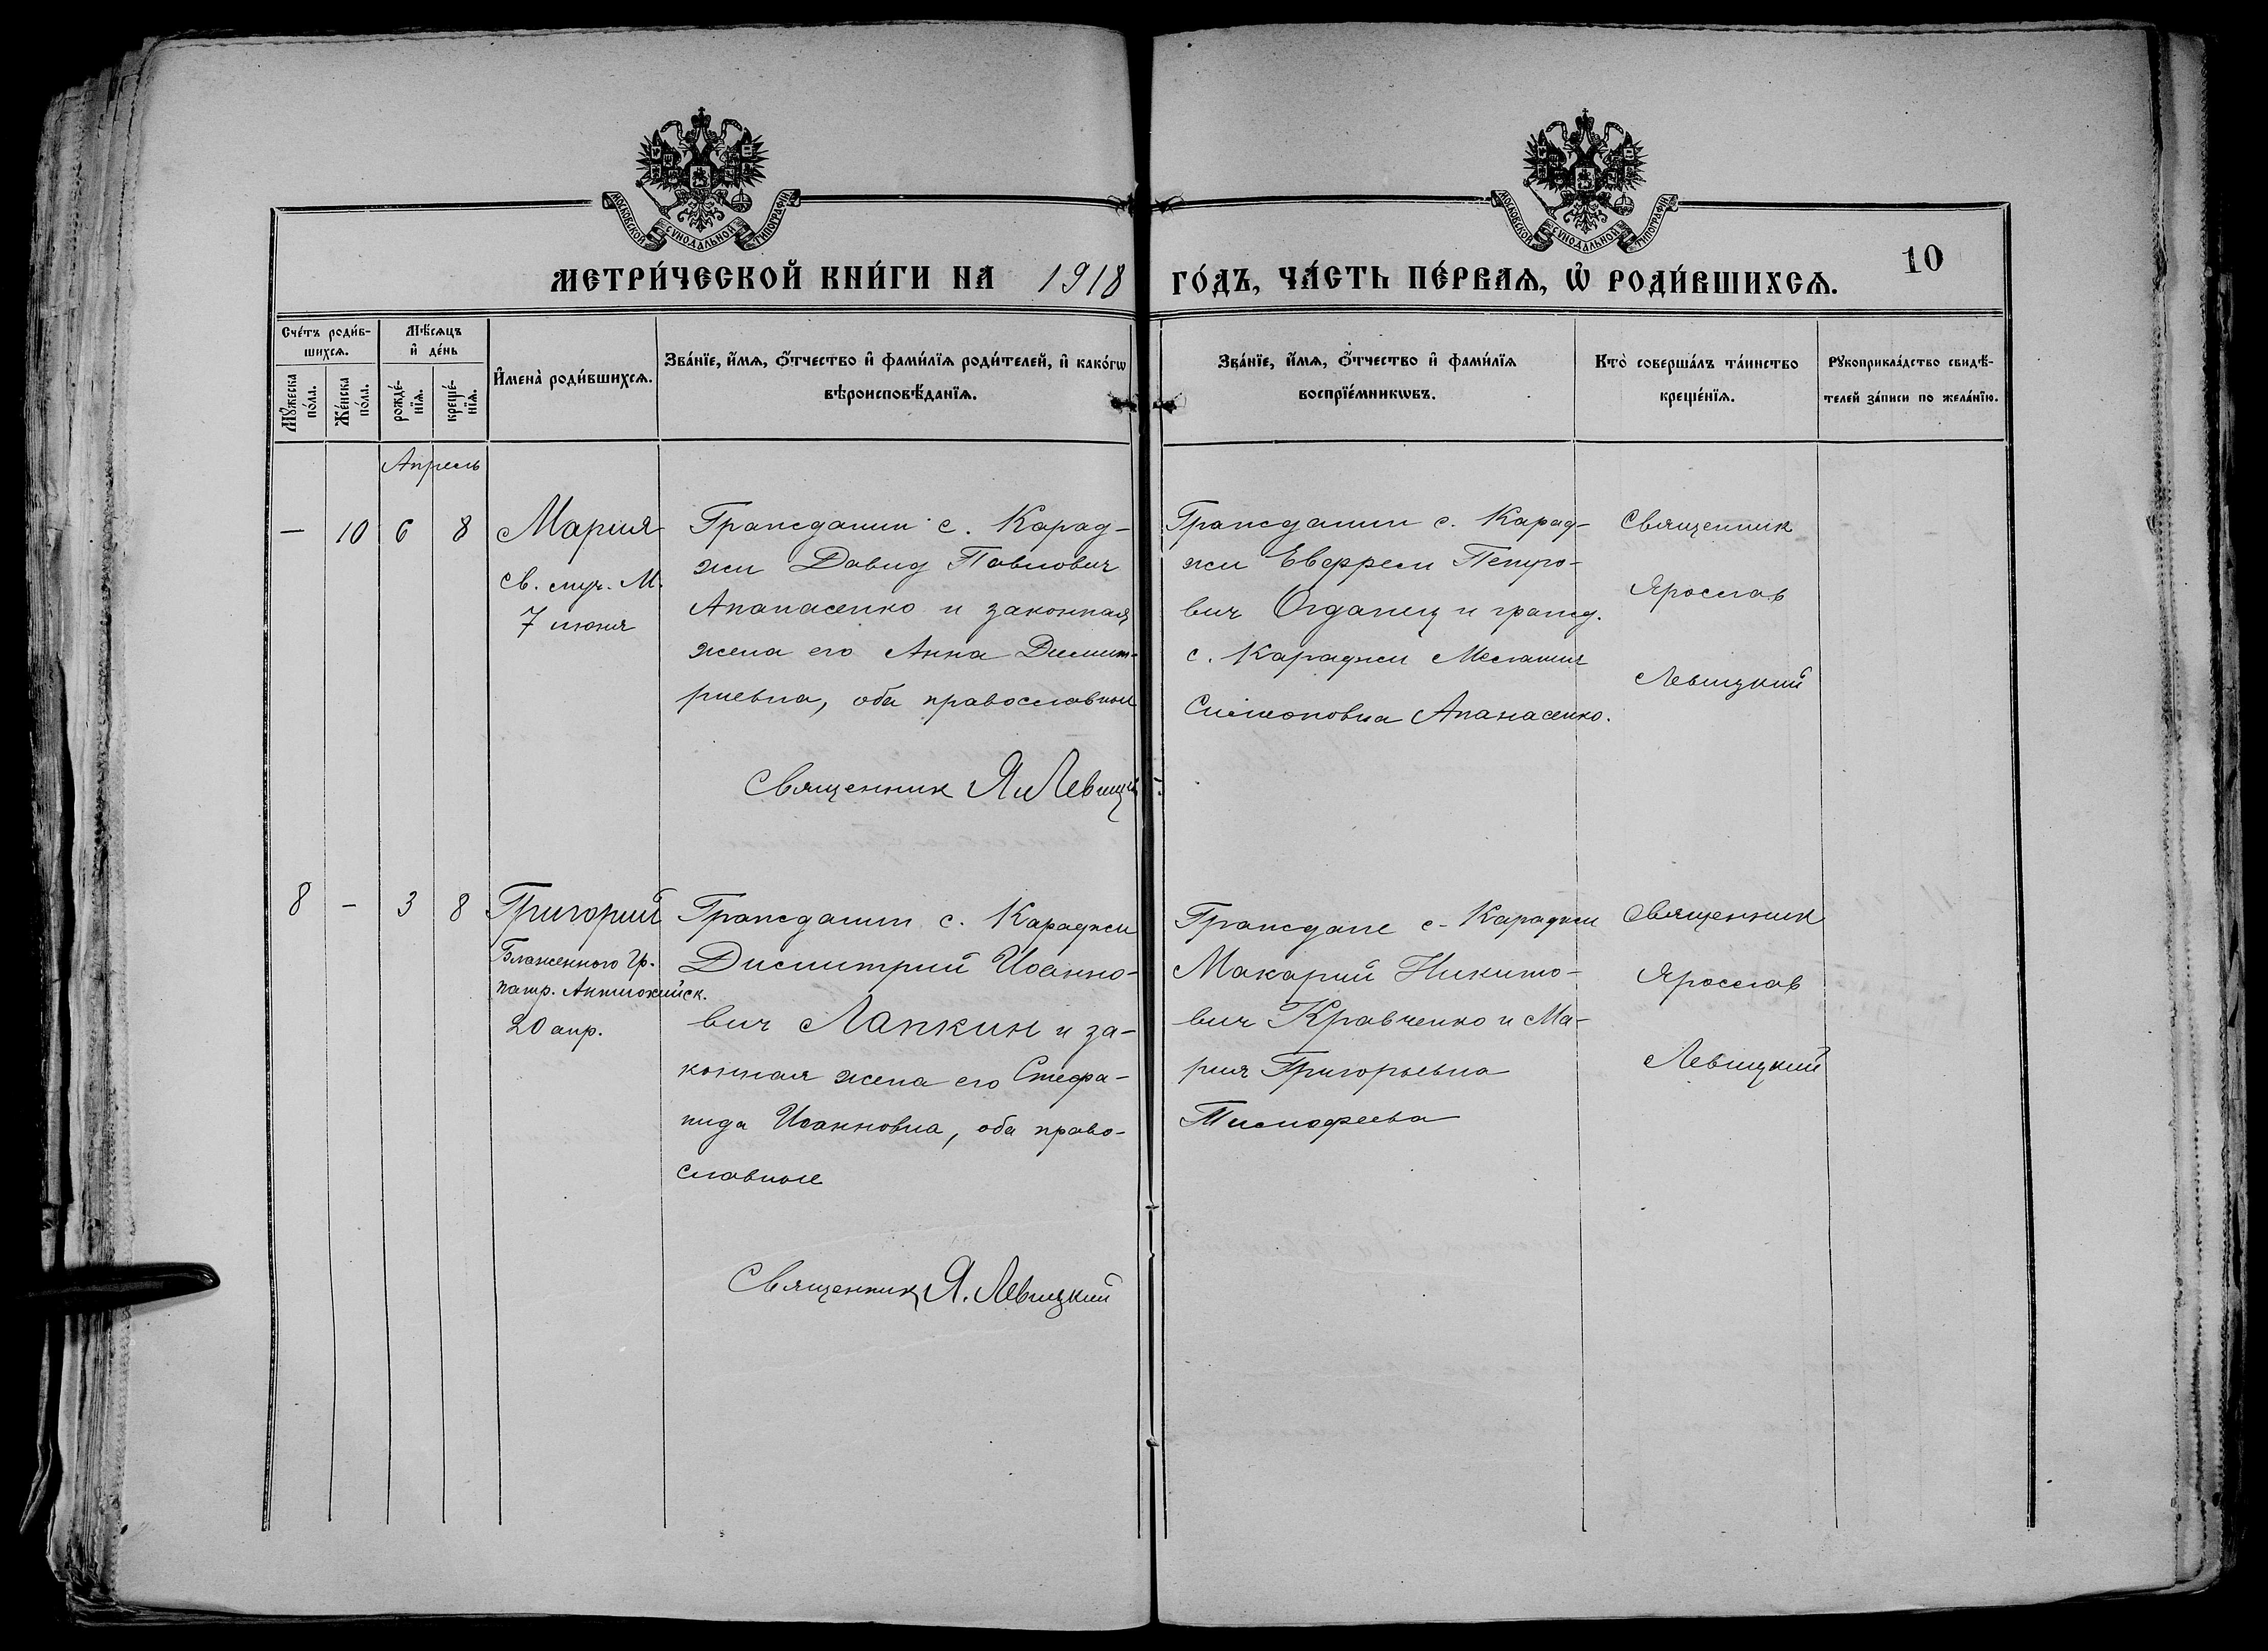 МОСКОВСКОЙ СѴНОДАЛЬНОЙ ТИПОГРАФІИ
МОСКОВСКОЙ СѴНОДАЛЬНОЙ ТИПОГРАФІИ
МЕТРИ́ЧЕСКОЙ КНИ́ГИ НА 1918 ГО́ДЪ, ЧА́СТЬ ПЕ́РВАѦ, Ѡ҆ РОДИ́ВШИХСѦ.
10
Сче́тъ роди́в-
шихсѧ.
Мꙋ́жеска
по́ла.
Же́нска
по́ла.
Мѣ́сѧцъ
и҆ де́нь
рожде́-
нїѧ.
креще́-
нїѧ.
И҆мена̀ роди́вшихсѧ.
Зва́нїе, и҆́мѧ, ѻ҆́тчество и҆ фами́лїѧ роди́телей, и҆ како́гѡ
вѣроисповѣ́данїѧ.
Зва́нїе, и҆́мѧ, ѻ҆́тчество и҆ фами́лїѧ
воспрїе́мникѡвъ.
Кто̀ соверша́лъ та́инство
креще́нїѧ.
Рꙋкоприкла́дство свидѣ́-
телей за́писи по жела́нїю.
Апрель
— 10 6 8
Мария
св. муч. М.
7 июня
Гражданин с. Карад-
жи Давид Павлович
Апанасенко и законная
жена его Анна Димит-
риевна, оба православные
Священник Я. Левицкий
Гражданин с. Карад-
жи Ефрем Петро-
вич и гражд.
с. Караджи Мелания
Симеоновна Апанасенко.
Священник
Ярослав
Левицкий
8 — 3 8
Григорий
Блаженного Гр.
патр. Антиохийск.
20 апр.
Гражданин с. Караджи
Димитрий Иоанно-
вич Лапкин и за-
конная жена его Стефа-
нида Иоанновна, оба право-
славные
Священник Я. Левицкий
Граждане с. Караджи
Макарий Никито-
вич Кравченко и Ма-
рия Григорьевна
Тимофеева
Священник
Ярослав
Левицкий